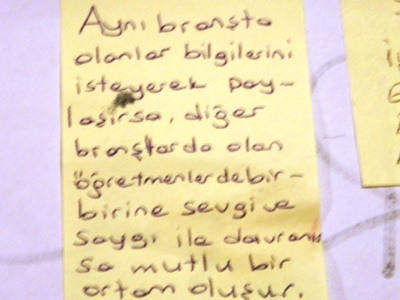 Aynı branşta
olanlar bilgilerini
isteyerek pay-
laşırsa, diğer
branşlarda olan
öğretmenlerdebir-
birine sevgi ve
saygı ile davranır
sa mutlu bir
ortam oluşur.